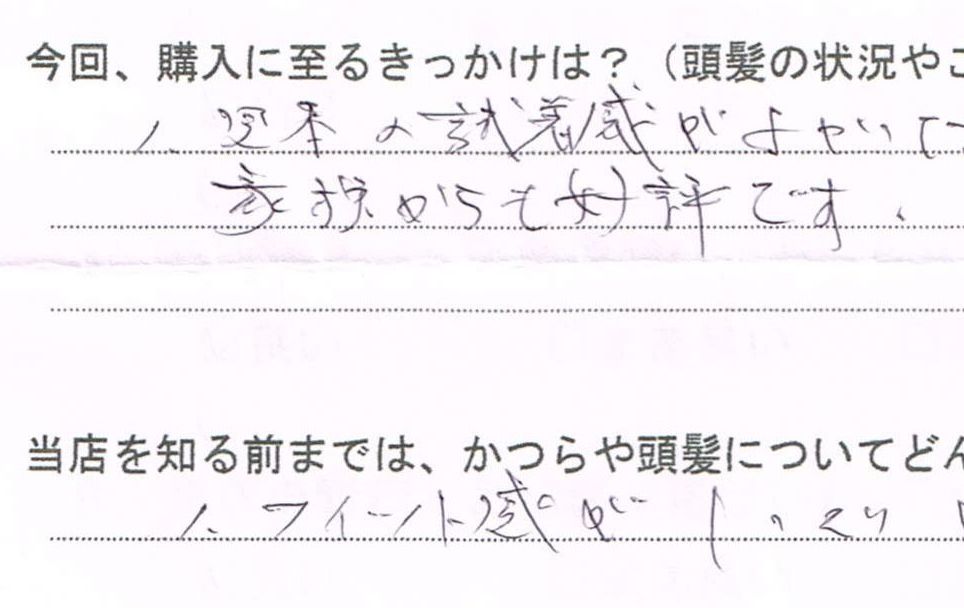 今回、購入に至るきっかけは？（頭髪の状況やこ
1. 見本の試着感がよかった
家族からも好評です.
当店を知る前までは、かつらや頭髪についてどん
1. フィット感がしっくり